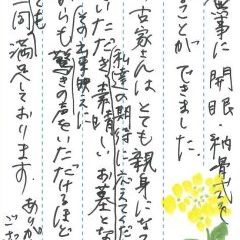 無事に開眼・納骨式を
ることができました。
古家さんはとても親身にな
私達の期待に応えてくだ
いただき素晴しいお墓とな
その出来映えに
からも驚きの声をいただけるほど
ても
同満足しております。ありが
ござ